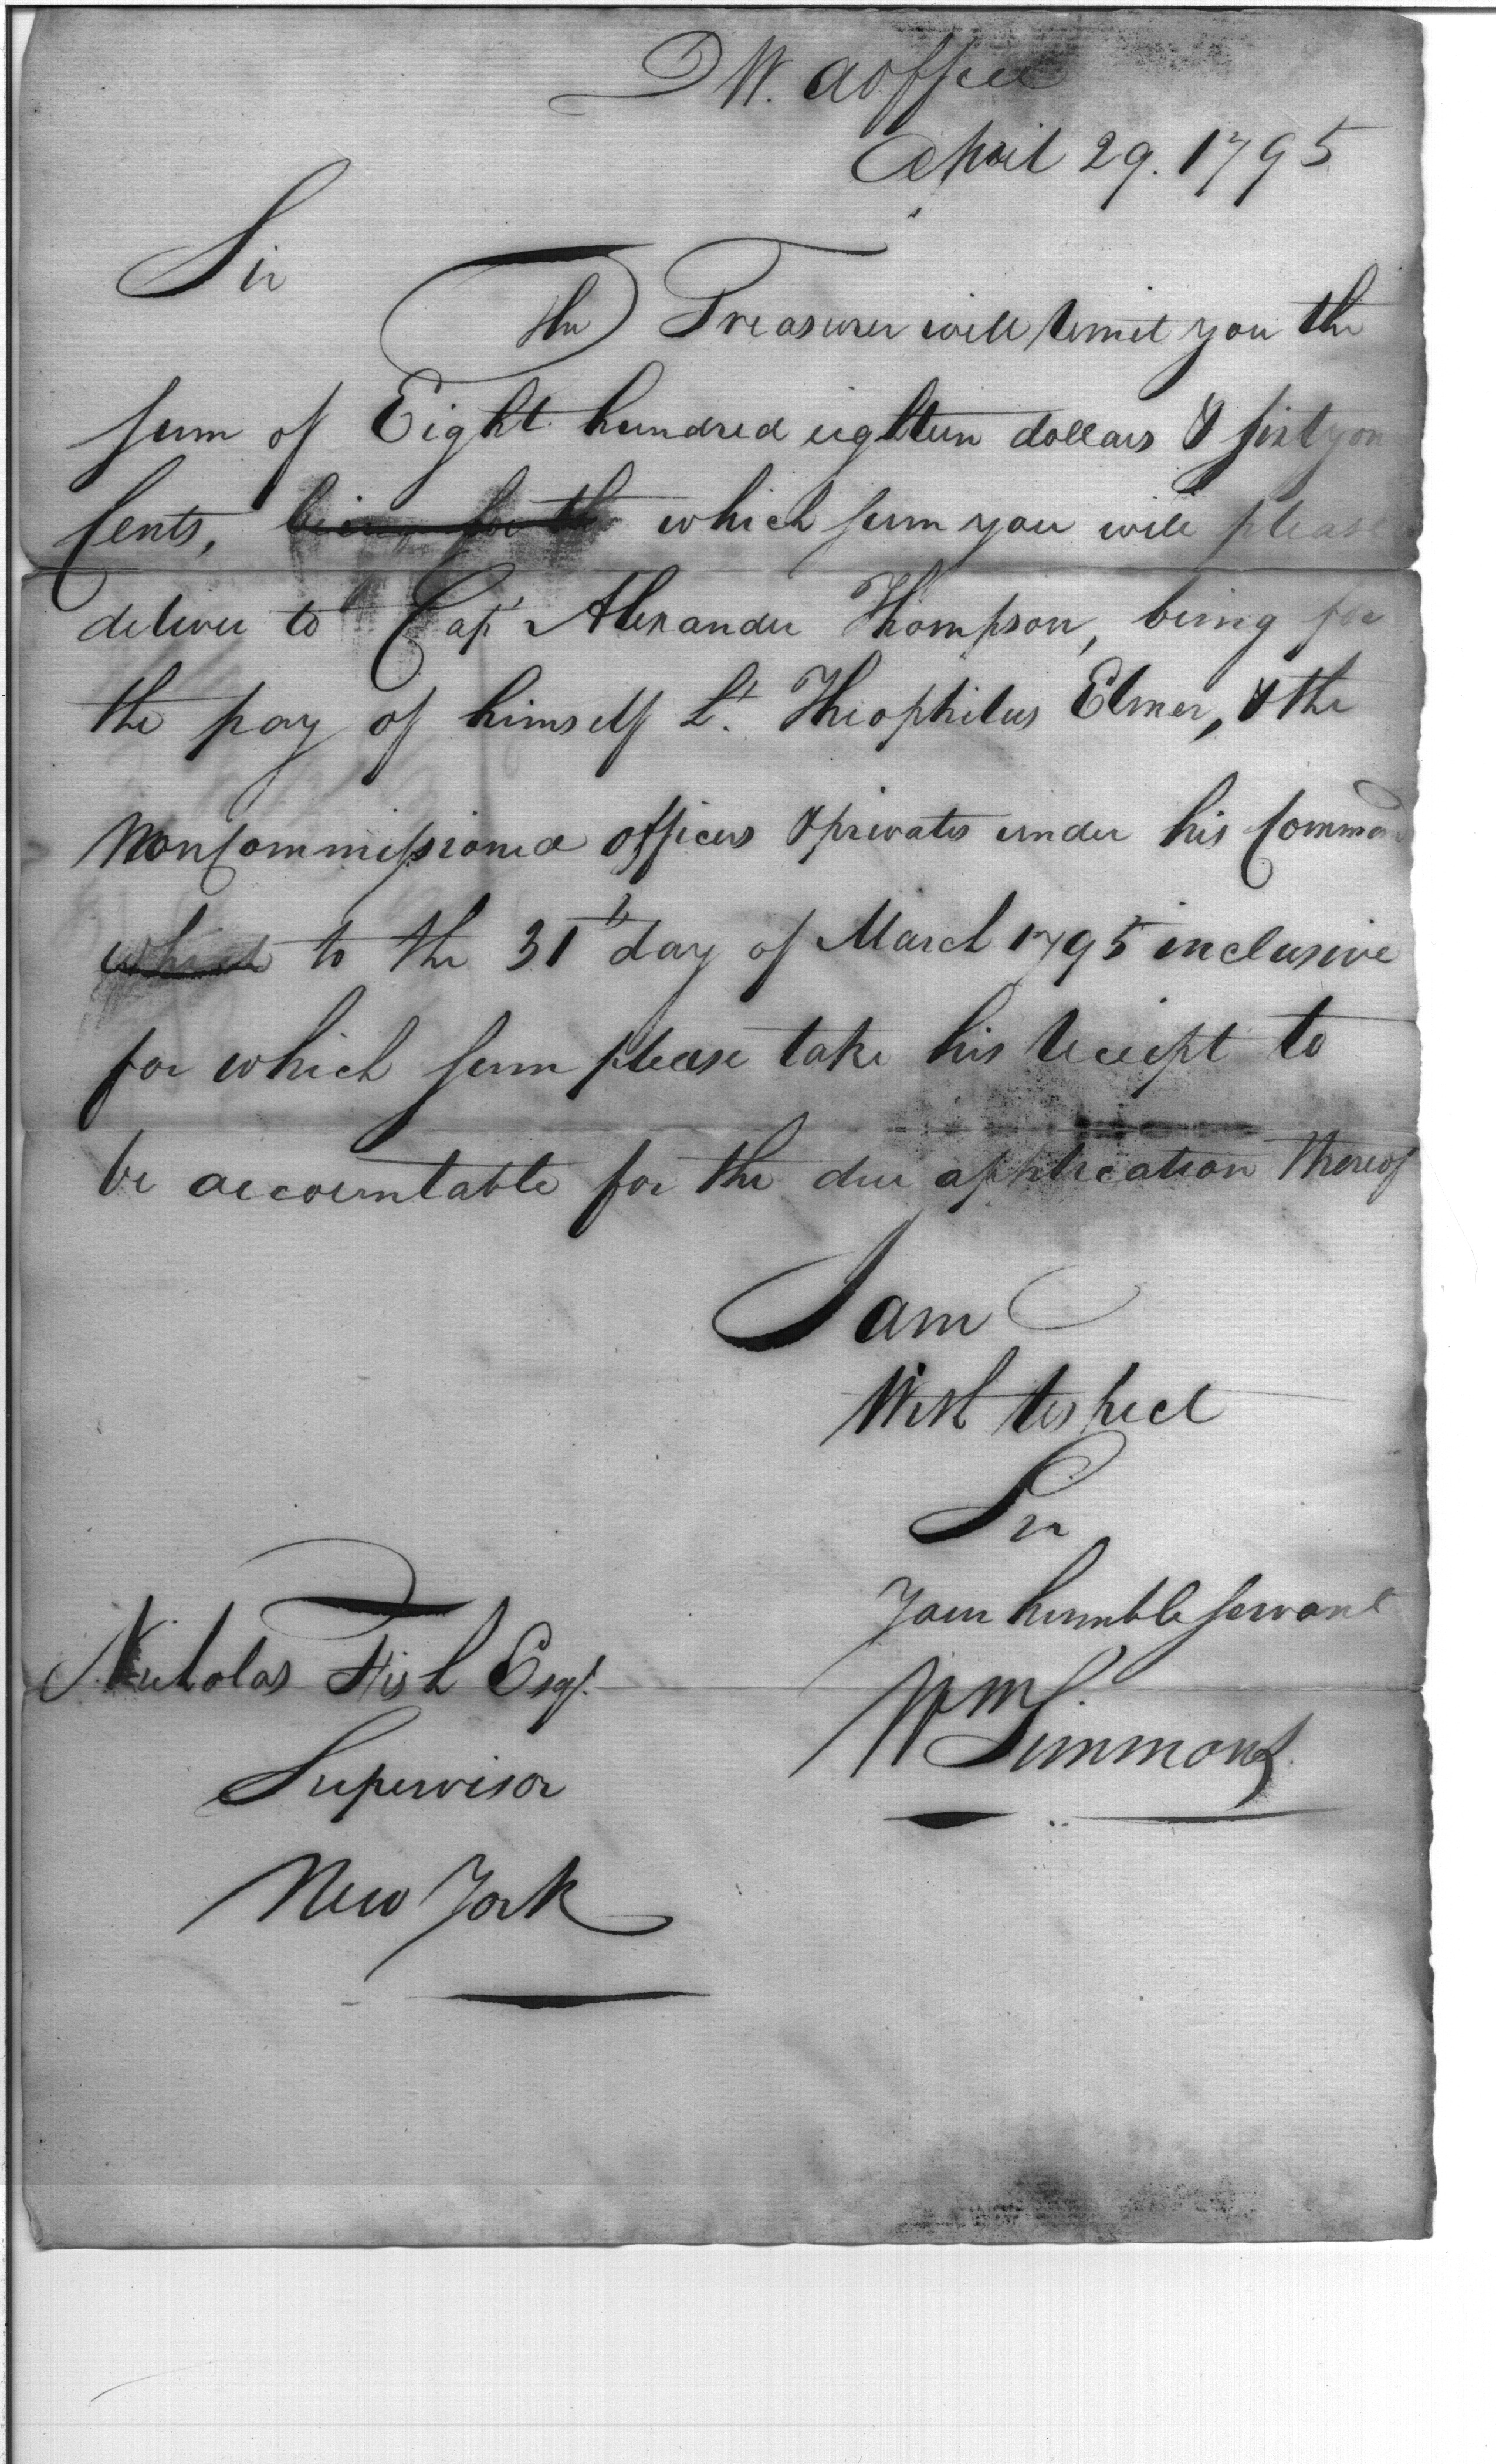 D W. a office
April 29. 1795
Sir
The Treasurer will remit you the
sum of Eight hundred eighteen dollars & sixty on
Cents, being for the which sum you will please
deliver to Capt Alexander Thompson, being for
the pay of himself Lt. Theophilus Elmer, & the
Noncommissioned officers & privates under his Comman
which to the 31st day of March 1795 inclusive
for which sum please take his receipt to
be accountable for the due application thereof
I am
With respect
Sir
Your humble servant
Wm Simmons
Nicholas Fish Esqr.
Supervisor
New York